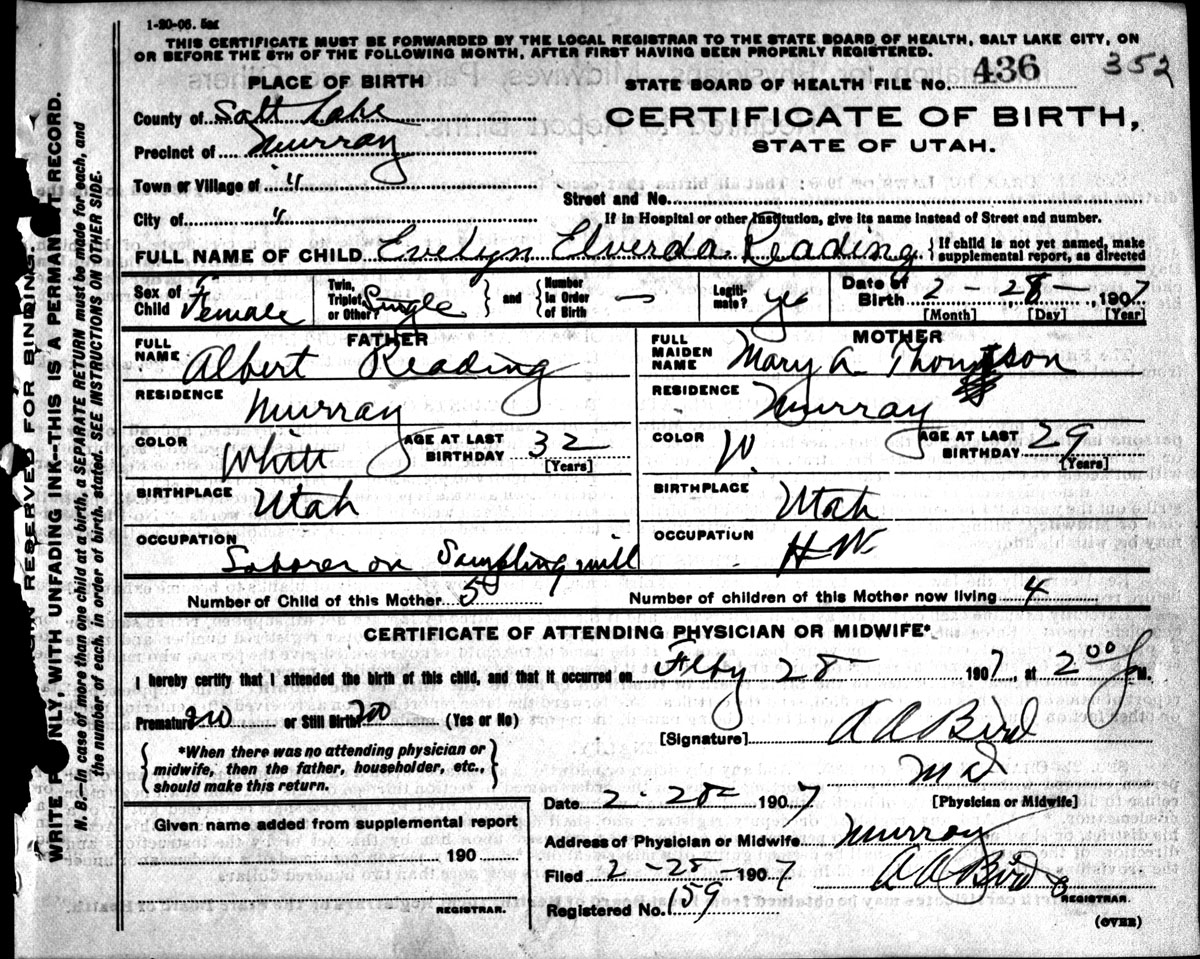 1-20-06. 5m
THIS CERTIFICATE MUST BE FORWARDED BY THE LOCAL REGISTRAR TO THE STATE BOARD OF HEALTH, SALT LAKE CITY, ON
OR BEFORE THE 5TH OF THE FOLLOWING MONTH, AFTER FIRST HAVING BEEN PROPERLY REGISTERED.
352
PLACE OF BIRTH
STATE BOARD OF HEALTH FILE NO. 436
County of Salt Lake
CERTIFICATE OF BIRTH,
Precinct of Murray
STATE OF UTAH.
Town or Village of "
Street and No.
City of "
If in Hospital or other Institution, give its name instead of Street and number.
FULL NAME OF CHILD Evelyn Elverda Reading { If child is not yet named, make
supplemental report, as directed
Sex of Child Female
Twin, Triplet, or Other? Single } and { Number in Order of Birth —
Legitimate? yes
Date of Birth 2 - 28 -, 1907
[Month] [Day] [Year]
FATHER
FULL NAME Albert Reading
RESIDENCE Murray
COLOR White AGE AT LAST BIRTHDAY 32
[Years]
BIRTHPLACE Utah
OCCUPATION Laborer on Sampling mill
MOTHER
FULL MAIDEN NAME Mary A. Thomson
RESIDENCE Murray
COLOR W. AGE AT LAST BIRTHDAY 29
[Years]
BIRTHPLACE Utah
OCCUPATION H W
Number of Child of this Mother 5 Number of children of this Mother now living 4
CERTIFICATE OF ATTENDING PHYSICIAN OR MIDWIFE*
I hereby certify that I attended the birth of this child, and that it occurred on Feby 28 1907, at 2 00 P M.
Premature no or Still Birth? no (Yes or No)
[Signature] A A Bird
M D
[Physician or Midwife]
{ *When there was no attending physician or
midwife, then the father, householder, etc.,
should make this return. }
Date 2 28 1907
Given name added from supplemental report
190
REGISTRAR.
Address of Physician or Midwife Murray
Filed 2 - 28 - 1907 A A Bird
REGISTRAR.
Registered No. 159
(OVER)
MARGIN RESERVED FOR BINDING.
WRITE PLAINLY, WITH UNFADING INK—THIS IS A PERMANENT RECORD.
N. B.—In case of more than one child at a birth, a SEPARATE RETURN must be made for each, and
the number of each, in order of birth, stated. SEE INSTRUCTIONS ON OTHER SIDE.